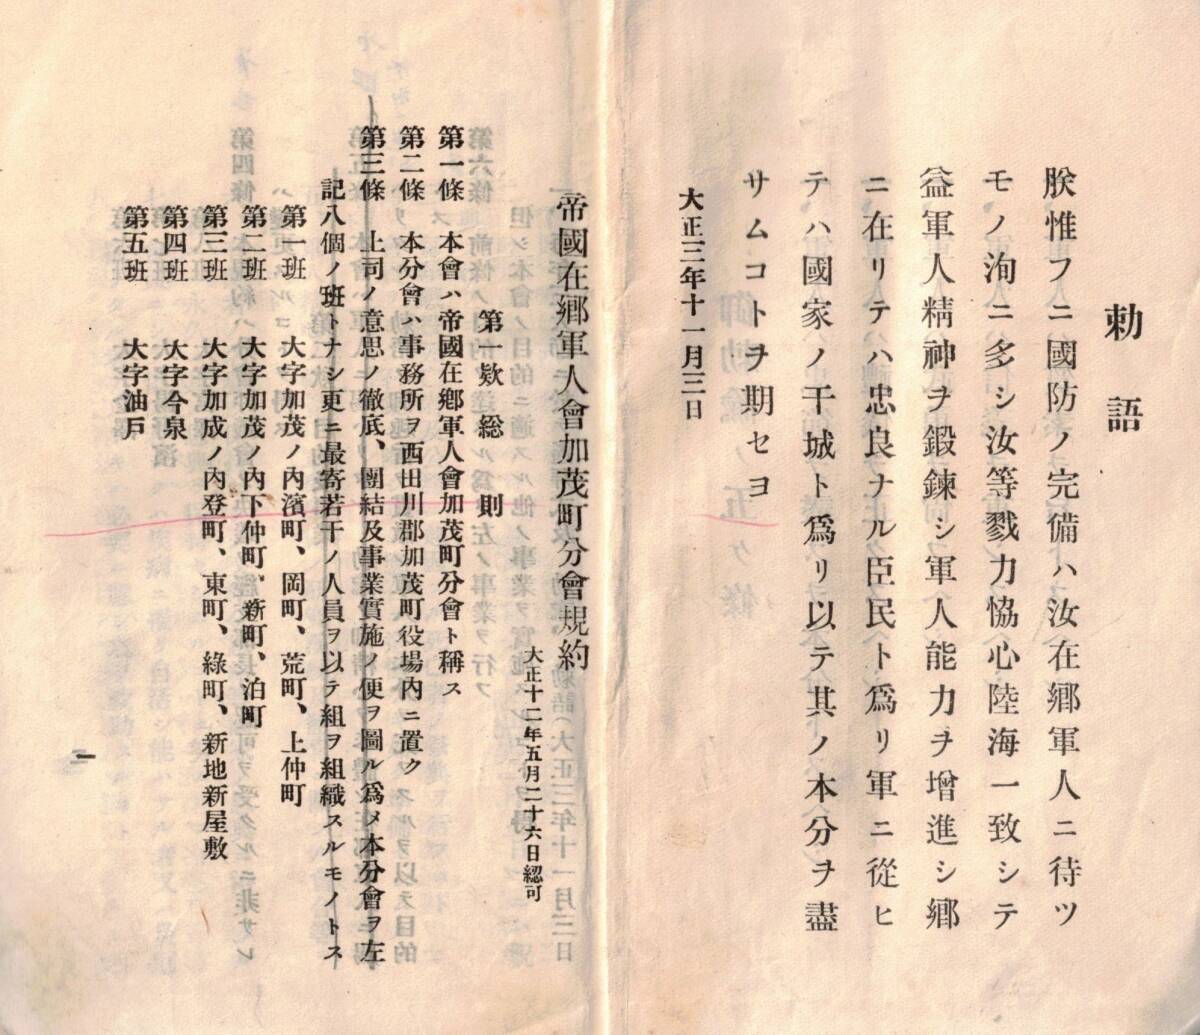 勅語
朕惟フニ國防ノ完備ハ汝在鄕軍人ニ待ツ
モノ洵ニ多シ汝等戮力協心陸海一致シテ
益軍人精神ヲ鍛鍊シ軍人能力ヲ增進シ鄕
ニ在リテハ忠良ナル臣民ト爲リ軍ニ從ヒ
テハ國家ノ干城ト爲リ以テ其ノ本分ヲ盡
サムコトヲ期セヨ
大正三年十一月三日
帝國在鄕軍人會加茂町分會規約
大正十二年五月二十六日認可
第一欵 総則
第一條 本會ハ帝國在鄕軍人會加茂町分會ト稱ス
第二條 本分會ハ事務所ヲ西田川郡加茂町役場內ニ置ク
第三條 上司ノ意思ノ徹底、團結及事業實施ノ便ヲ圖ル爲メ本分會ヲ左
記八個ノ班トナシ更ニ最寄若干ノ人員ヲ以テ組ヲ組織スルモノトス
第一班 大字加茂ノ內濱町、岡町、荒町、上仲町
第二班 大字加茂ノ內下仲町、新町、泊町
第三班 大字加成ノ內登町、東町、綠町、新地新屋敷
第四班 大字今泉
第五班 大字油戶
一